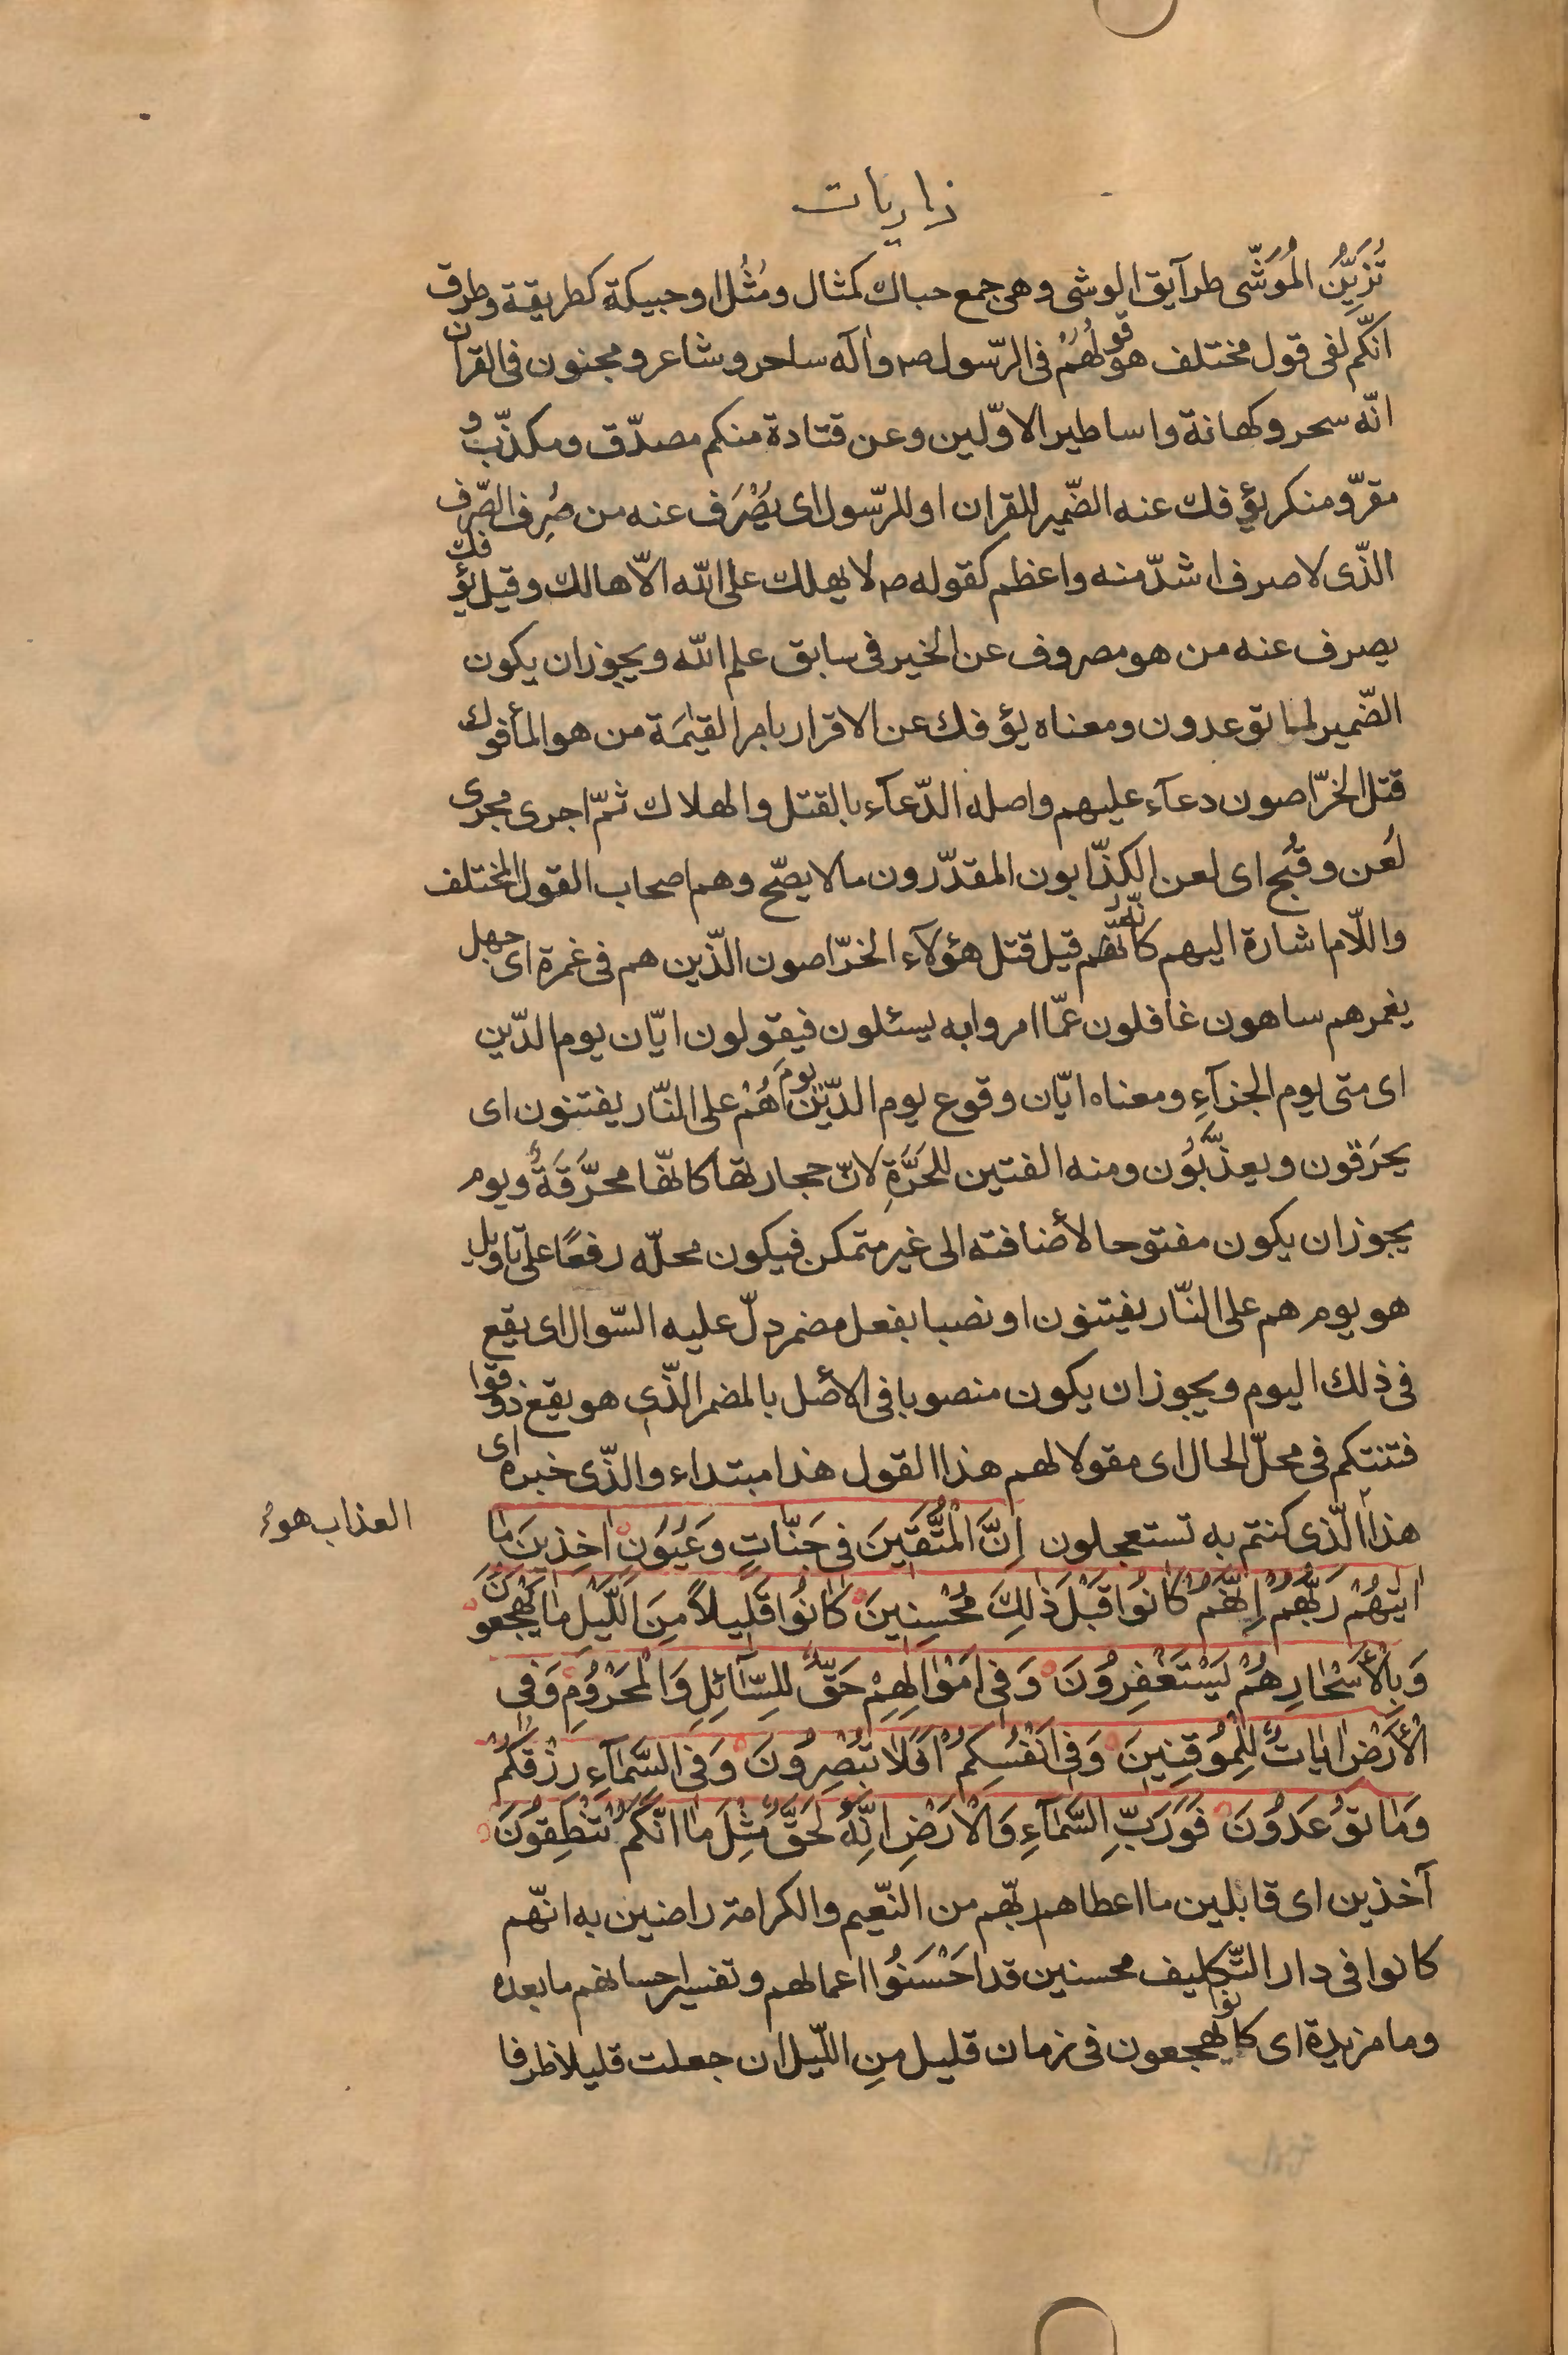 ذاريات
تُزَيِّنُ المُوَشّى طرآيق الوشى وهى جمع حباك كمثال ومُثُل او حبيكة كطريقة وطرق
انّكم لفى قول مختلف هو قولُهُمْ فى الرّسول صم وآله ساحر وشاعر ومجنون فى القرآن
انّه سحر وكهانة واساطير الاوّلين وعن قتادة منكم مصدّق ومكذّب و
مقرّ ومنكر يؤفك عنه الضّمير للقران او للرّسول اى يُصْرَف عنه من صُرِف الصّرف
الذّى لا صرف اشدّ منه واعظم كقوله صم لا يهلك على اللّه الّا هالك وقيل يؤفك
يصرف عنه من هو مصروف عن الخير فى سابق علم اللّه ويجوز ان يكون
الضّمير لما توعدون ومعناه يؤفك عن الاقرار بامر القيٰمَة من هو المأفوك
قتل الخرّاصون دعآء عليهم واصله الدّعآء بالقتل والهلاك ثمّ اجرى مجرى
لُعن وقُبح اى لعن الكذّابون المقدّرون ما لا يصّح وهم اصحاب القول المختلف
واللّام اشارة اليهم كانّهم قيل قتل هؤلآء الخرّاصون الذّين هم فى غمرة اى جهل
يغمرهم ساهون غافلون عمّا امروا به يسئلون فيقولون ايّان يوم الدّين
اى متى يوم الجزآءِ ومعناه ايّان وقوع يوم الدّين يومَ هُمْ على النّار يفتنون اى
يحَرَقون ويعذّبُون ومنه الفتين للحَرَّةِ لانّ حجارتها كانّها محرَّقَةٌ ويوم
يجوز ان يكون مفتوحا لأضافته الى غير متمكن فيكون محلّه رفعًا على تاويل
هو يوم هم على النّار يفتنون او نصبا بفعل مضمر دلّ عليه السّوال اى يقع
فى ذلك اليوم ويجوز ان يكون منصوبا فى الأصل بالمضمر الذّى هو يقع ذوقوا
فتنتكم فى محلّ الحال اى مقولا لهم هذا القول هذا مبتداء والذّى خبره اى
هذا الّذى كنتم به تستعجلون اِنَّ الْمُتَّقٖينَ فى جَنّٰاتٍ وَعُيُونٍ اٰخِذٖينَ مٰا
العذاب هو
اٰتٰيهُمْ رَبُّهُمْ اِنَّهُمْ كٰانُوا قَبْلَ ذٰلِكَ مُحْسِنٖينَ كٰانُوا قَلٖيلاً مِنَ اللَّيْلِ مٰا يَهْجَعُونَ
وَبِالْأَسْحٰارِ هُمْ يَسْتَغْفِرُونَ وَفٖى اَمْوٰالِهِمْ حَقٌّ لِلسّٰآئِلِ وَالْمَحْرُومِ وَفِى
الْأَرْضِ اٰيٰاتٌ لِلْمُوقِنٖينَ وَفٖى اَنْفُسِكُمْ اَفَلٰا تُبْصِرُونَ وَفِى السَّمٰآءِ رِزْقُكُمْ
وَمٰا تُوعَدُونَ فَوَرَبِّ السَّمٰآءِ وَالْاَرْضِ اِنَّهُ لَحَقٌّ مِثْلَ مٰا اَنَّكُمْ تَنْطِقُونَ
آخذين اى قابلين ما اعطاهم ربّهم من النّعيم والكرامة راضين به انّهم
كانوا فى دار التّكليف محسنين قد احْسَنُوا اعمالهم وتفسير احسانهم ما بعده
وما مزيدة اى كانوا يهجعون فى زمان قليل مِن اللّيل ان جعلت قليلا ظرفا